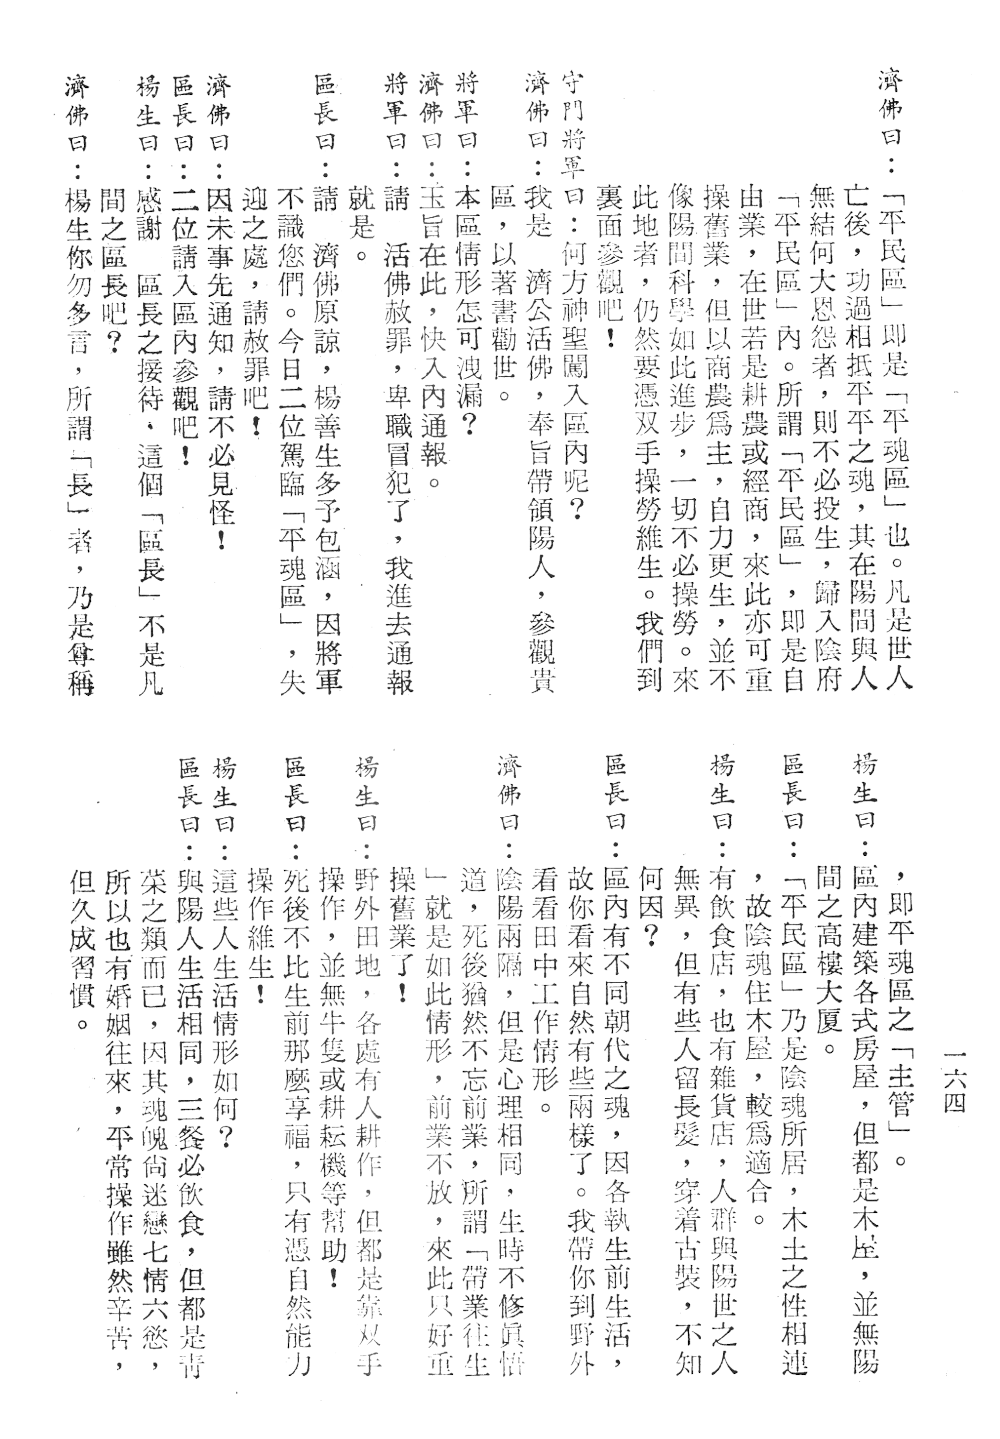 濟佛曰：「平民區」即是「平魂區」也。凡是世人
亡後，功過相抵平平之魂，其在陽間與人
無結何大恩怨者，則不必投生，歸入陰府
「平民區」內。所謂「平民區」，即是自
由業，在世若是耕農或經商，來此亦可重
操舊業，但以商農爲主，自力更生，並不
像陽間科學如此進步，一切不必操勞。來
此地者，仍然要憑双手操勞維生。我們到
裏面參觀吧！
守門將軍曰：何方神聖闖入區內呢？
濟佛曰：我是　濟公活佛，奉旨帶領陽人，參觀貴
區，以著書勸世。
將軍曰：本區情形怎可洩漏？
濟佛曰：玉旨在此，快入內通報。
將軍曰：請　活佛赦罪，卑職冒犯了，我進去通報
就是。
區長曰：請　濟佛原諒，楊善生多予包涵，因將軍
不識您們。今日二位駕臨「平魂區」，失
迎之處，請赦罪吧！
濟佛曰：因未事先通知，請不必見怪！
區長曰：二位請入區內參觀吧！
楊生曰：感謝　區長之接待、這個「區長」不是凡
間之區長吧？
濟佛曰：楊生你勿多言，所謂「長」者，乃是尊稱
，即平魂區之「主管」。
楊生曰：區內建築各式房屋，但都是木屋，並無陽
間之高樓大厦。
區長曰：「平民區」乃是陰魂所居，木土之性相連
，故陰魂住木屋，較爲適合。
楊生曰：有飲食店，也有雜貨店，人群與陽世之人
無異，但有些人留長髮，穿着古裝，不知
何因？
區長曰：區內有不同朝代之魂，因各執生前生活，
故你看來自然有些兩樣了。我帶你到野外
看看田中工作情形。
濟佛曰：陰陽兩隔，但是心理相同，生時不修眞悟
道，死後猶然不忘前業，所謂「帶業往生
」就是如此情形，前業不放，來此只好重
操舊業了！
楊生曰：野外田地，各處有人耕作，但都是靠双手
操作，並無牛隻或耕耘機等幫助！
區長曰：死後不比生前那麼享福，只有憑自然能力
操作維生！
楊生曰：這些人生活情形如何？
區長曰：與陽人生活相同，三餐必飲食，但都是靑
菜之類而已，因其魂魄尙迷戀七情六慾，
所以也有婚姻往來，平常操作雖然辛苦，
但久成習慣。
一六四